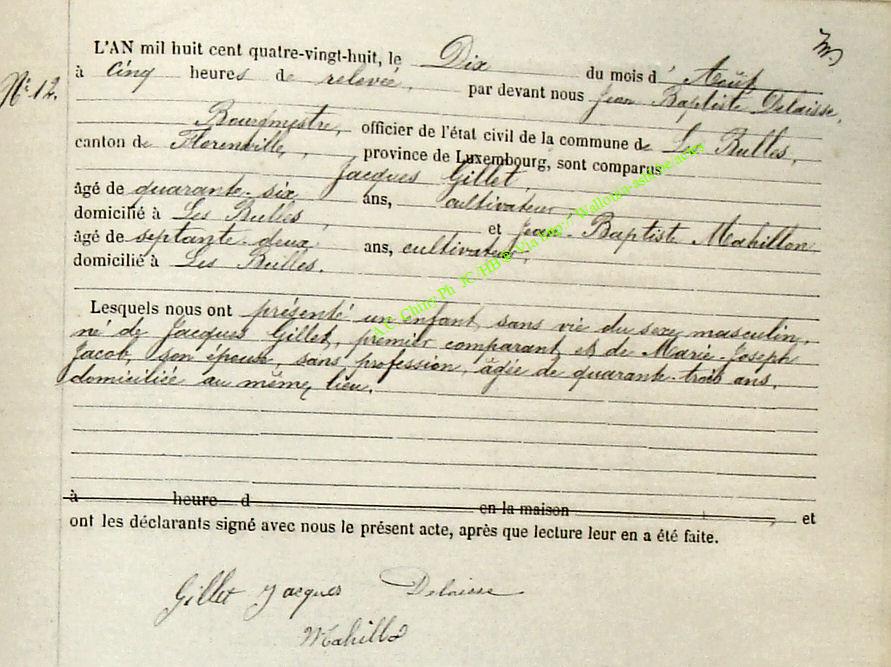 L'AN mil huit cent quatre-vingt-huit, le Dix du mois d' Août
N° 12. à Cinq heures de relevée, par devant nous Jean Baptiste Delaisse,
Bourgmestre, officier de l'état civil de la commune de Les Bulles,
canton de Florenville, province de Luxembourg, sont comparus
Jacques Gillet,
âgé de quarante-six ans, cultivateur
domicilié à Les Bulles, et Jean-Baptiste Mahillon
âgé de septante-deux ans, cultivateur
domicilié à Les Bulles.
Lesquels nous ont présenté un enfant sans vie du sexe masculin,
né de Jacques Gillet, premier comparant et de Marie-Joseph
Jacob, son épouse, sans profession, âgée de quarante-trois ans,
domiciliée au même lieu.
à heure d en la maison , et
ont les déclarants signé avec nous le présent acte, après que lecture leur en a été faite.
Gillet Jacques Delaisse
Mahillo